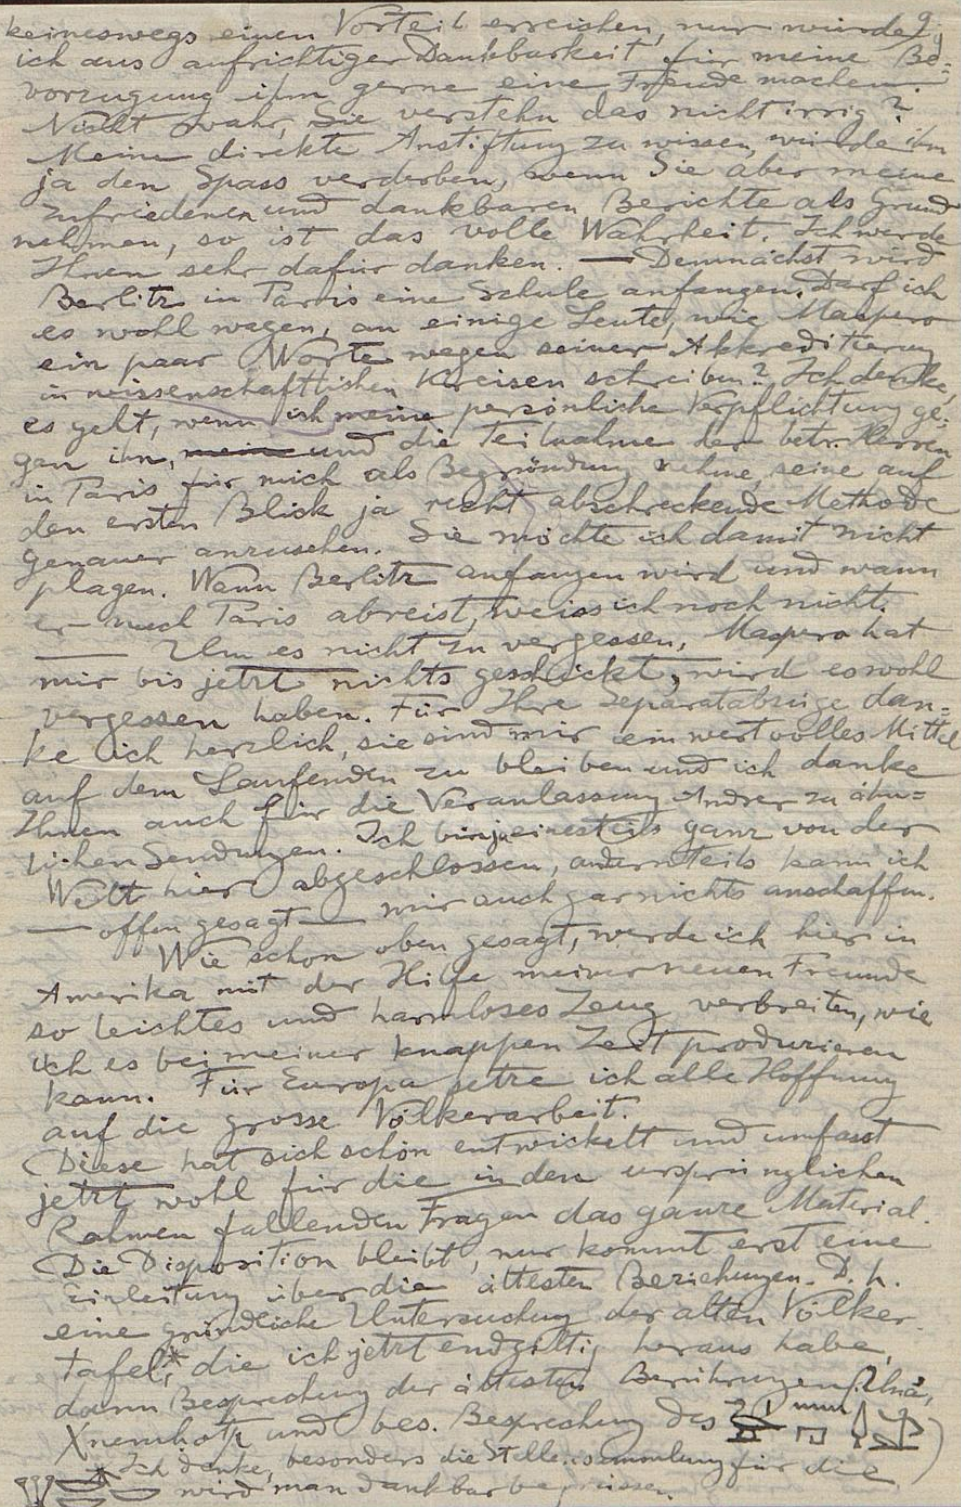 9.
keineswegs einen Vorteil erreichen, nur würde
ich aus aufrichtiger Dankbarkeit für meine Be-
vorzugung ihm gerne eine Freude machen.
Nicht wahr, Sie verstehn das nicht irrig?
Meine direkte Anstiftung zu wissen, würde ihm
ja den Spass verderben, wenn Sie aber meine
zufriedenen und dankbaren Berichte als Grund
nehmen, so ist das volle Wahrheit. Ich werde
Ihnen sehr dafür danken. — Demnächst wird
Berlitz in Paris eine Schule anfangen. Darf ich
es wohl wagen, an einige Leute, wie Maspero
ein paar Worte wegen seiner Akkreditierung
in wissenschaftlichen Kreisen schreiben? Ich denke,
es geht, wenn ich meine persönliche Verpflichtung ge-
gen ihn, mein und die Teilnahme der betr. Herren
in Paris für mich als Begründung nehme, seine auf
den ersten Blick ja recht abschreckende Methode
genauer anzusehen. Sie möchte ich damit nicht
plagen. Wann Berlitz anfangen wird und wann
er nach Paris abreist, weiss ich noch nicht.
— Um es nicht zu vergessen, Maspero hat
mir bis jetzt nichts geschickt, wird es wohl
vergessen haben. Für Ihre Separatabzüge dan-
ke ich herzlich, sie sind mir ein wertvolles Mittel
auf dem Laufenden zu bleiben und ich danke
Ihnen auch für die Veranlassung Andrer zu ähn-
lichen Sendungen. Ich bin ja einesteils ganz von der
Welt hier abgeschlossen, andernteils kann ich
— offen gesagt — mir auch gar nichts anschaffen.
Wie schon oben gesagt, werde ich hier in
Amerika mit der Hilfe meiner neuen Freunde
so leichtes und harmloses Zeug verbreiten, wie
ich es bei meiner knappen Zeit produzieren
kann. Für Europa setze ich alle Hoffnung
auf die grosse Völkerarbeit.
Diese hat sich schön entwickelt und umfasst
jetzt wohl für die in den ursprünglichen
Rahmen fallenden Fragen das ganze Material.
Die Disposition bleibt, nur kommt erst eine
Einleitung über die ältesten Beziehungen. D. h.
eine gründliche Untersuchung der alten Völker-
tafel,* die ich jetzt endgiltig heraus habe,
dann Besprechung der ältesten Berührungen
und bes. Besprechung des
* Ich denke, besonders die Stellensammlung für die
wird man dankbar begrüssen.